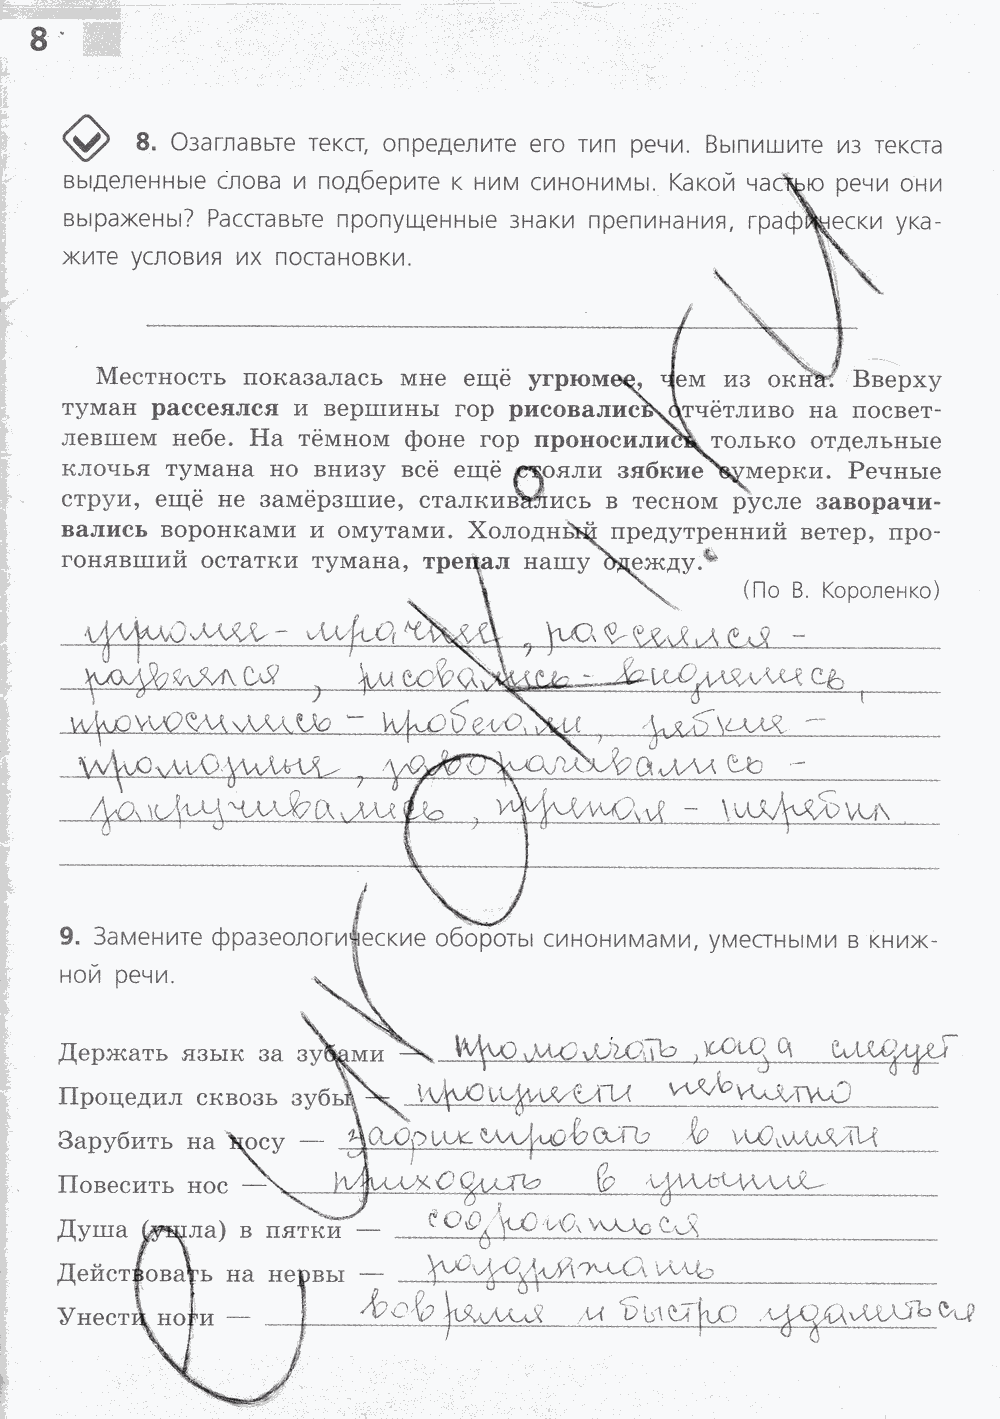 8
8. Озаглавьте текст, определите его тип речи. Выпишите из текста
выделенные слова и подберите к ним синонимы. Какой частью речи они
выражены? Расставьте пропущенные знаки препинания, графически ука-
жите условия их постановки.
Местность показалась мне ещё угрюмее, чем из окна. Вверху
туман рассеялся и вершины гор рисовались отчётливо на посвет-
левшем небе. На тёмном фоне гор проносились только отдельные
клочья тумана но внизу всё ещё стояли зябкие сумерки. Речные
струи, ещё не замёрзшие, сталкивались в тесном русле заворачи-
вались воронками и омутами. Холодный предутренний ветер, про-
гонявший остатки тумана, трепал нашу одежду.
(По В. Короленко)
угрюмее - мрачнее, рассеялся -
развеялся, рисовались - виднелись,
проносились - пробегали, зябкие -
промозглые, заворачивались -
закручивались, трепал - теребил
9. Замените фразеологические обороты синонимами, уместными в книж-
ной речи.
Держать язык за зубами — промолчать, когда следует
Процедил сквозь зубы — произнести невнятно
Зарубить на носу — зафиксировать в памяти
Повесить нос — приходить в уныние
Душа (ушла) в пятки — содрогаться
Действовать на нервы — раздражать
Унести ноги — вовремя и быстро удалиться